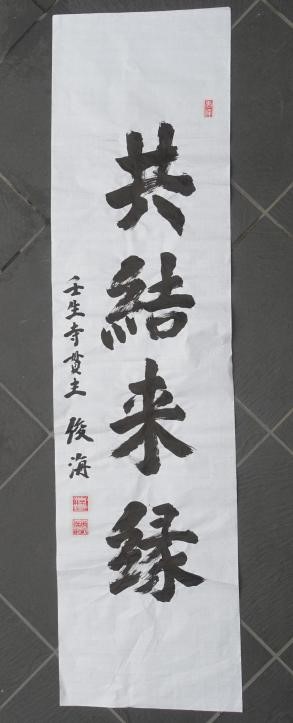 共結来縁
壬生寺貫主 俊海